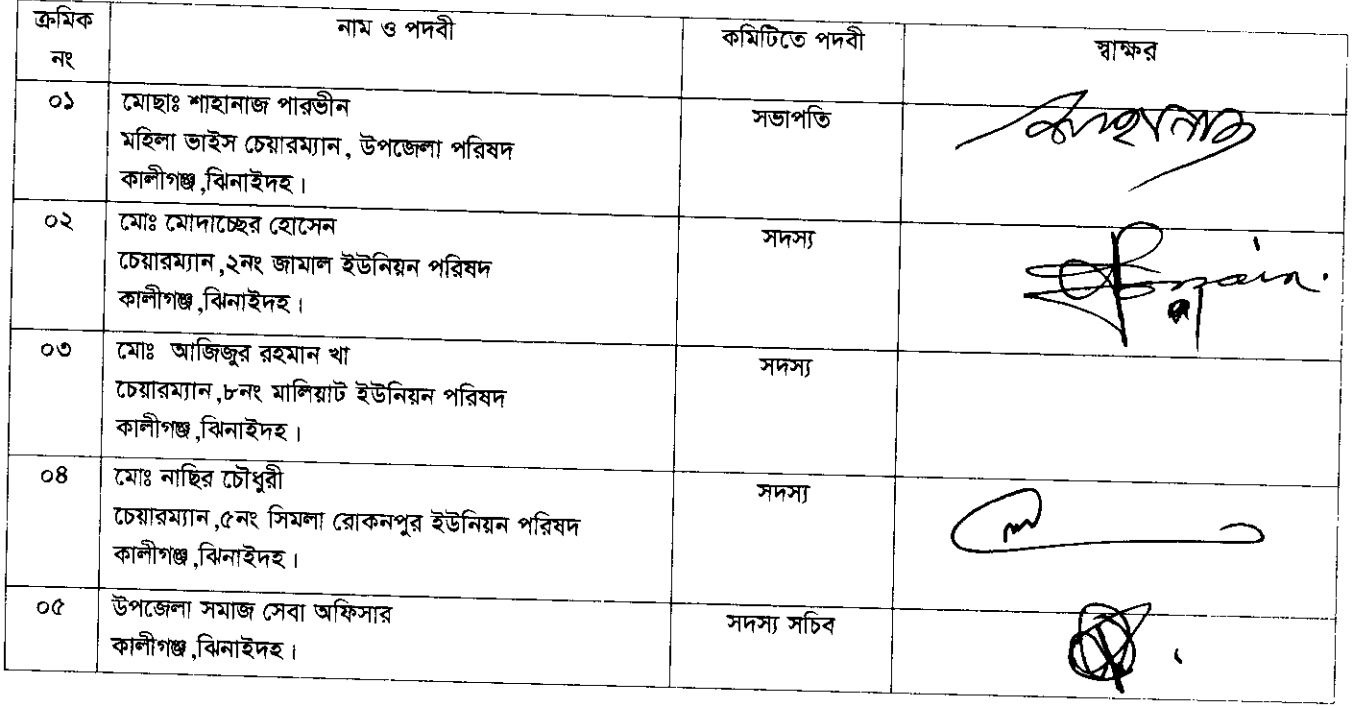 ক্রমিক নং নাম ও পদবী কমিটিতে পদবী স্বাক্ষর
০১ মোছাঃ শাহানাজ পারভীন সভাপতি
মহিলা ভাইস চেয়ারম্যান, উপজেলা পরিষদ
কালীগঞ্জ,ঝিনাইদহ।
০২ মোঃ মোদাচ্ছের হোসেন সদস্য
চেয়ারম্যান,২নং জামাল ইউনিয়ন পরিষদ
কালীগঞ্জ,ঝিনাইদহ।
০৩ মোঃ আজিজুর রহমান খা সদস্য
চেয়ারম্যান,৮নং মালিয়াট ইউনিয়ন পরিষদ
কালীগঞ্জ,ঝিনাইদহ।
০৪ মোঃ নাছির চৌধুরী সদস্য
চেয়ারম্যান,৫নং সিমলা রোকনপুর ইউনিয়ন পরিষদ
কালীগঞ্জ,ঝিনাইদহ।
০৫ উপজেলা সমাজ সেবা অফিসার সদস্য সচিব
কালীগঞ্জ,ঝিনাইদহ।